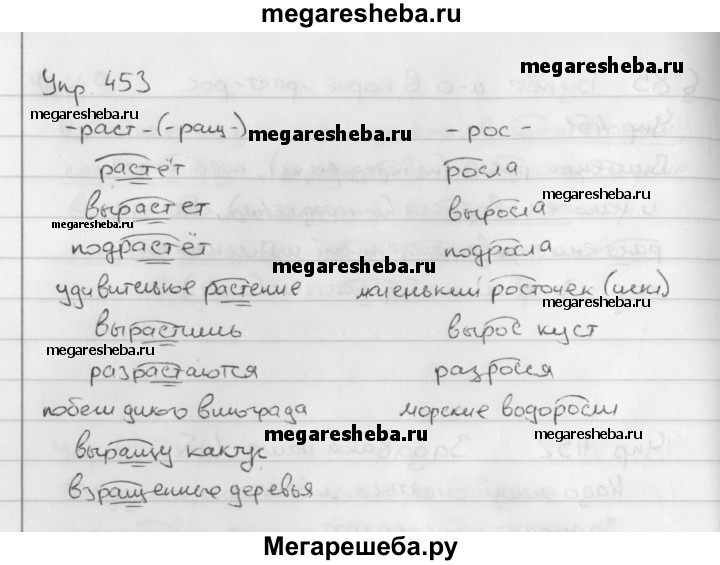 megaresheba.ru
Упр 453
megaresheba.ru
megaresheba.ru
-раст-(-ращ-) megaresheba.ru - рос -
растёт росла
вырастет выросла
megaresheba.ru
megaresheba.ru
подрастёт подросла
megaresheba.ru
удивительное растение маленький росточек (искл)
megaresheba.ru
вырастишь вырос куст
megaresheba.ru
разрастаются разросся
побеги дикого винограда морские водоросли
megaresheba.ru
megaresheba.ru
выращу кактус
взращенные деревья
megaresheba.ru
Мегарешеба.ру